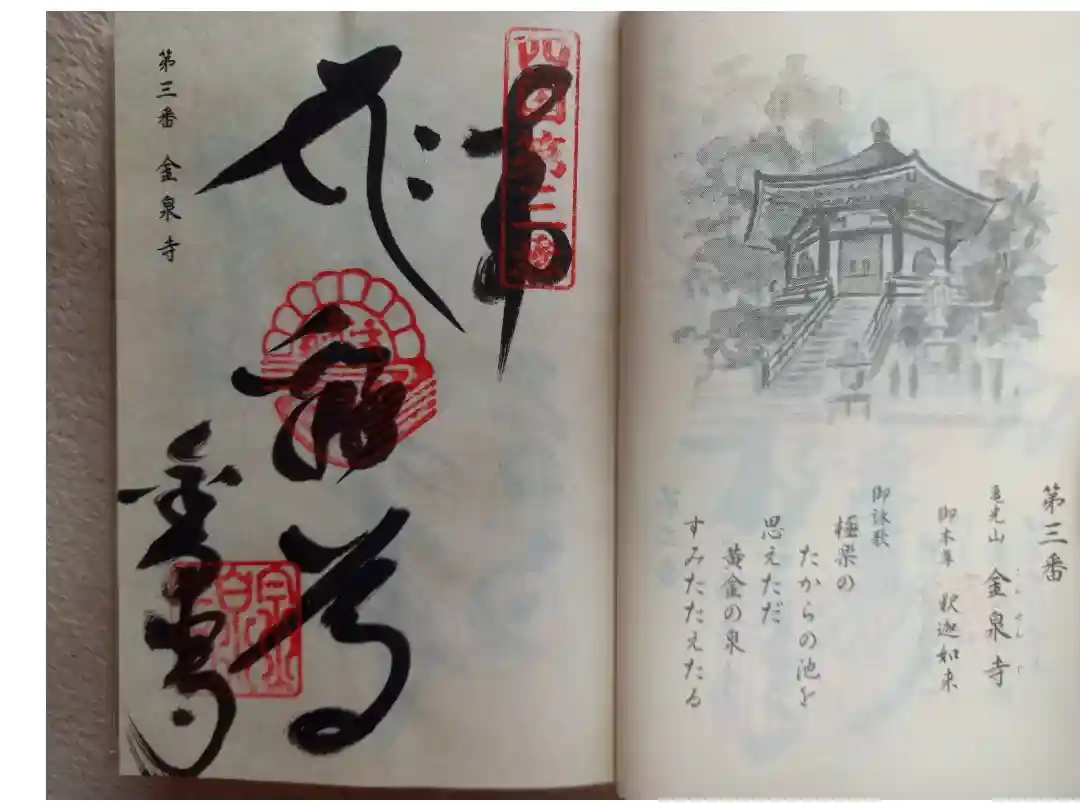 第三番
こんせんじ
亀光山 金泉寺
御本尊 釈迦如来
御詠歌
極楽の
たからの池を
思えただ
黄金の泉
すみたたえたる
四国第三番
奉
金泉寺
第三番 金泉寺